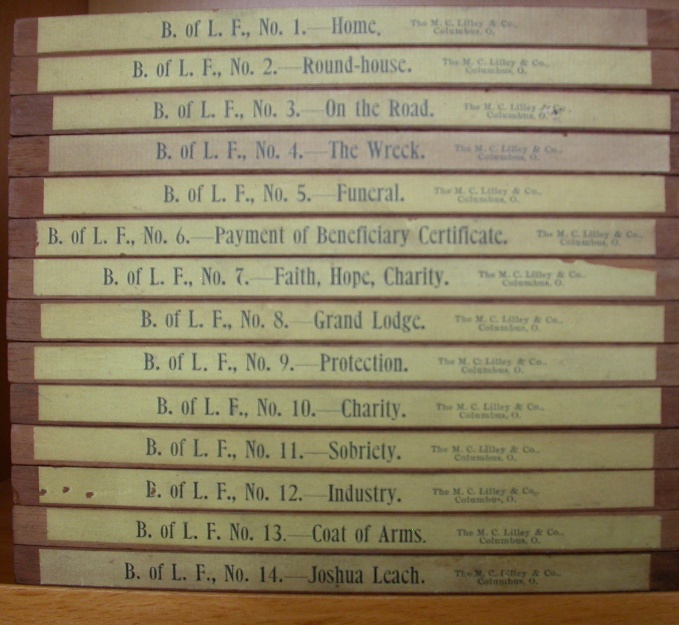 B. of L. F., No. 1.—Home. The M. C. Lilley & Co., Columbus, O.
B. of L. F., No. 2.—Round-house. The M. C. Lilley & Co., Columbus, O.
B. of L. F., No. 3.—On the Road. The M. C. Lilley & Co., Columbus, O.
B. of L. F., No. 4.—The Wreck. The M. C. Lilley & Co., Columbus, O.
B. of L. F., No. 5.—Funeral. The M. C. Lilley & Co., Columbus, O.
B. of L. F., No. 6.—Payment of Beneficiary Certificate. The M. C. Lilley & Co., Columbus, O.
B. of L. F., No. 7.—Faith, Hope, Charity. The M. C. Lilley & Co., Columbus, O.
B. of L. F., No. 8.—Grand Lodge. The M. C. Lilley & Co., Columbus, O.
B. of L. F., No. 9.—Protection. The M. C. Lilley & Co., Columbus, O.
B. of L. F., No. 10.—Charity. The M. C. Lilley & Co., Columbus, O.
B. of L. F., No. 11.—Sobriety. The M. C. Lilley & Co., Columbus, O.
B. of L. F., No. 12.—Industry. The M. C. Lilley & Co., Columbus, O.
B. of L. F. No. 13.—Coat of Arms. The M. C. Lilley & Co., Columbus, O.
B. of L. F., No. 14.—Joshua Leach. The M. C. Lilley & Co., Columbus, O.